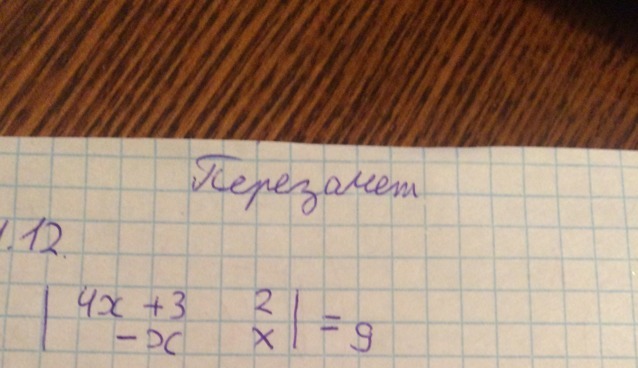 Перезачет
1.12.
| 4x + 3 2 | = 9
| -x x |